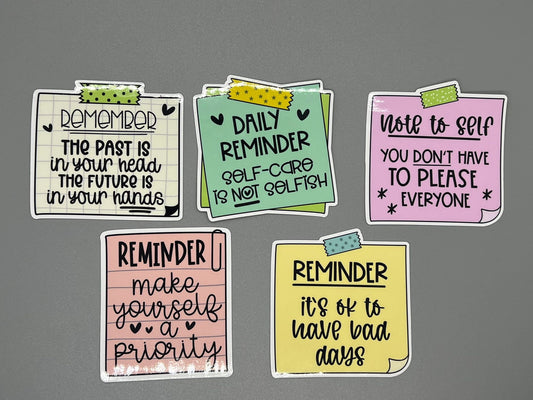 REMEMBER
THE PAST IS
in your head
THE FUTURE IS
in your hands
DAILY
REMINDER
SELF-CARE
IS NOT SELFISH
note to self
YOU DON'T HAVE
TO PLEASE
EVERYONE
REMINDER
make
yourself
a
priority
REMINDER
it's ok to
have bad
days